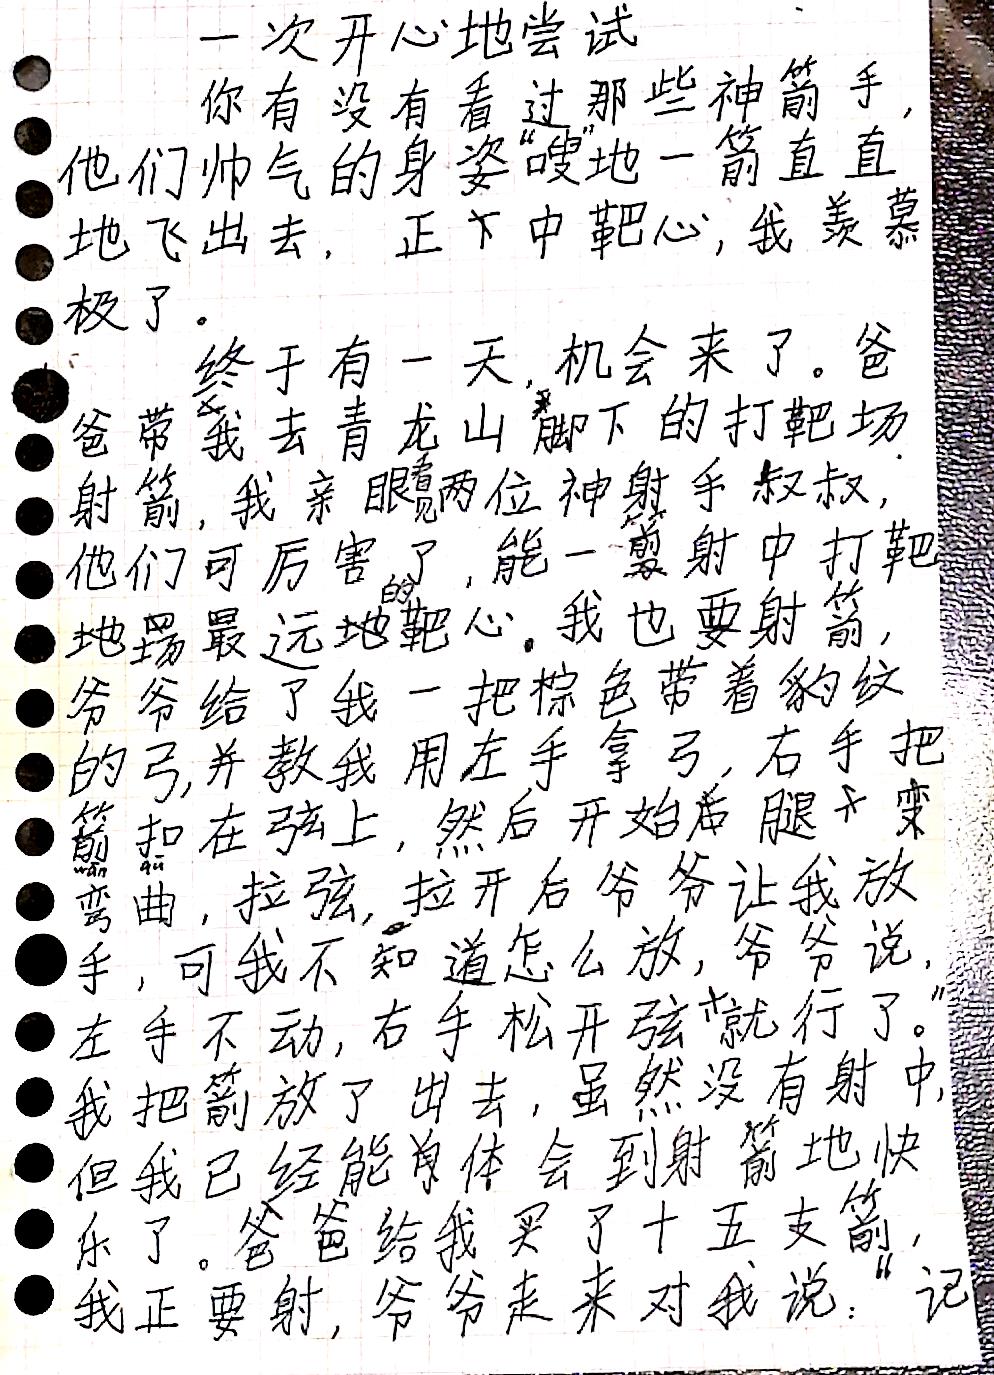 一次开心地尝试
你有没有看过那些神箭手，
他们帅气的身姿“嗖”地一箭直直
地飞出去，正中靶心，我羡慕
极了。
终于有一天，机会来了。爸
爸带我去青龙山脚下的打靶场
射箭，我亲眼看见两位神射手叔叔，
他们可厉害了，能一箭射中打靶
场最远的靶心。我也要射箭，
爷爷给了我一把棕色带着豹纹
的弓，并教我用左手拿弓，右手把
箭扣在弦上，然后开始后腿变
wān qū
弯曲，拉弦，拉开后爷爷让我放
手，可我不知道怎么放，爷爷说，
左手不动，右手松开弦就行了。”
我把箭放了出去，虽然没有射中，
但我已经能体会到射箭地快
乐了。爸爸给我买了十五支箭，
我正要射，爷爷走来对我说：“记